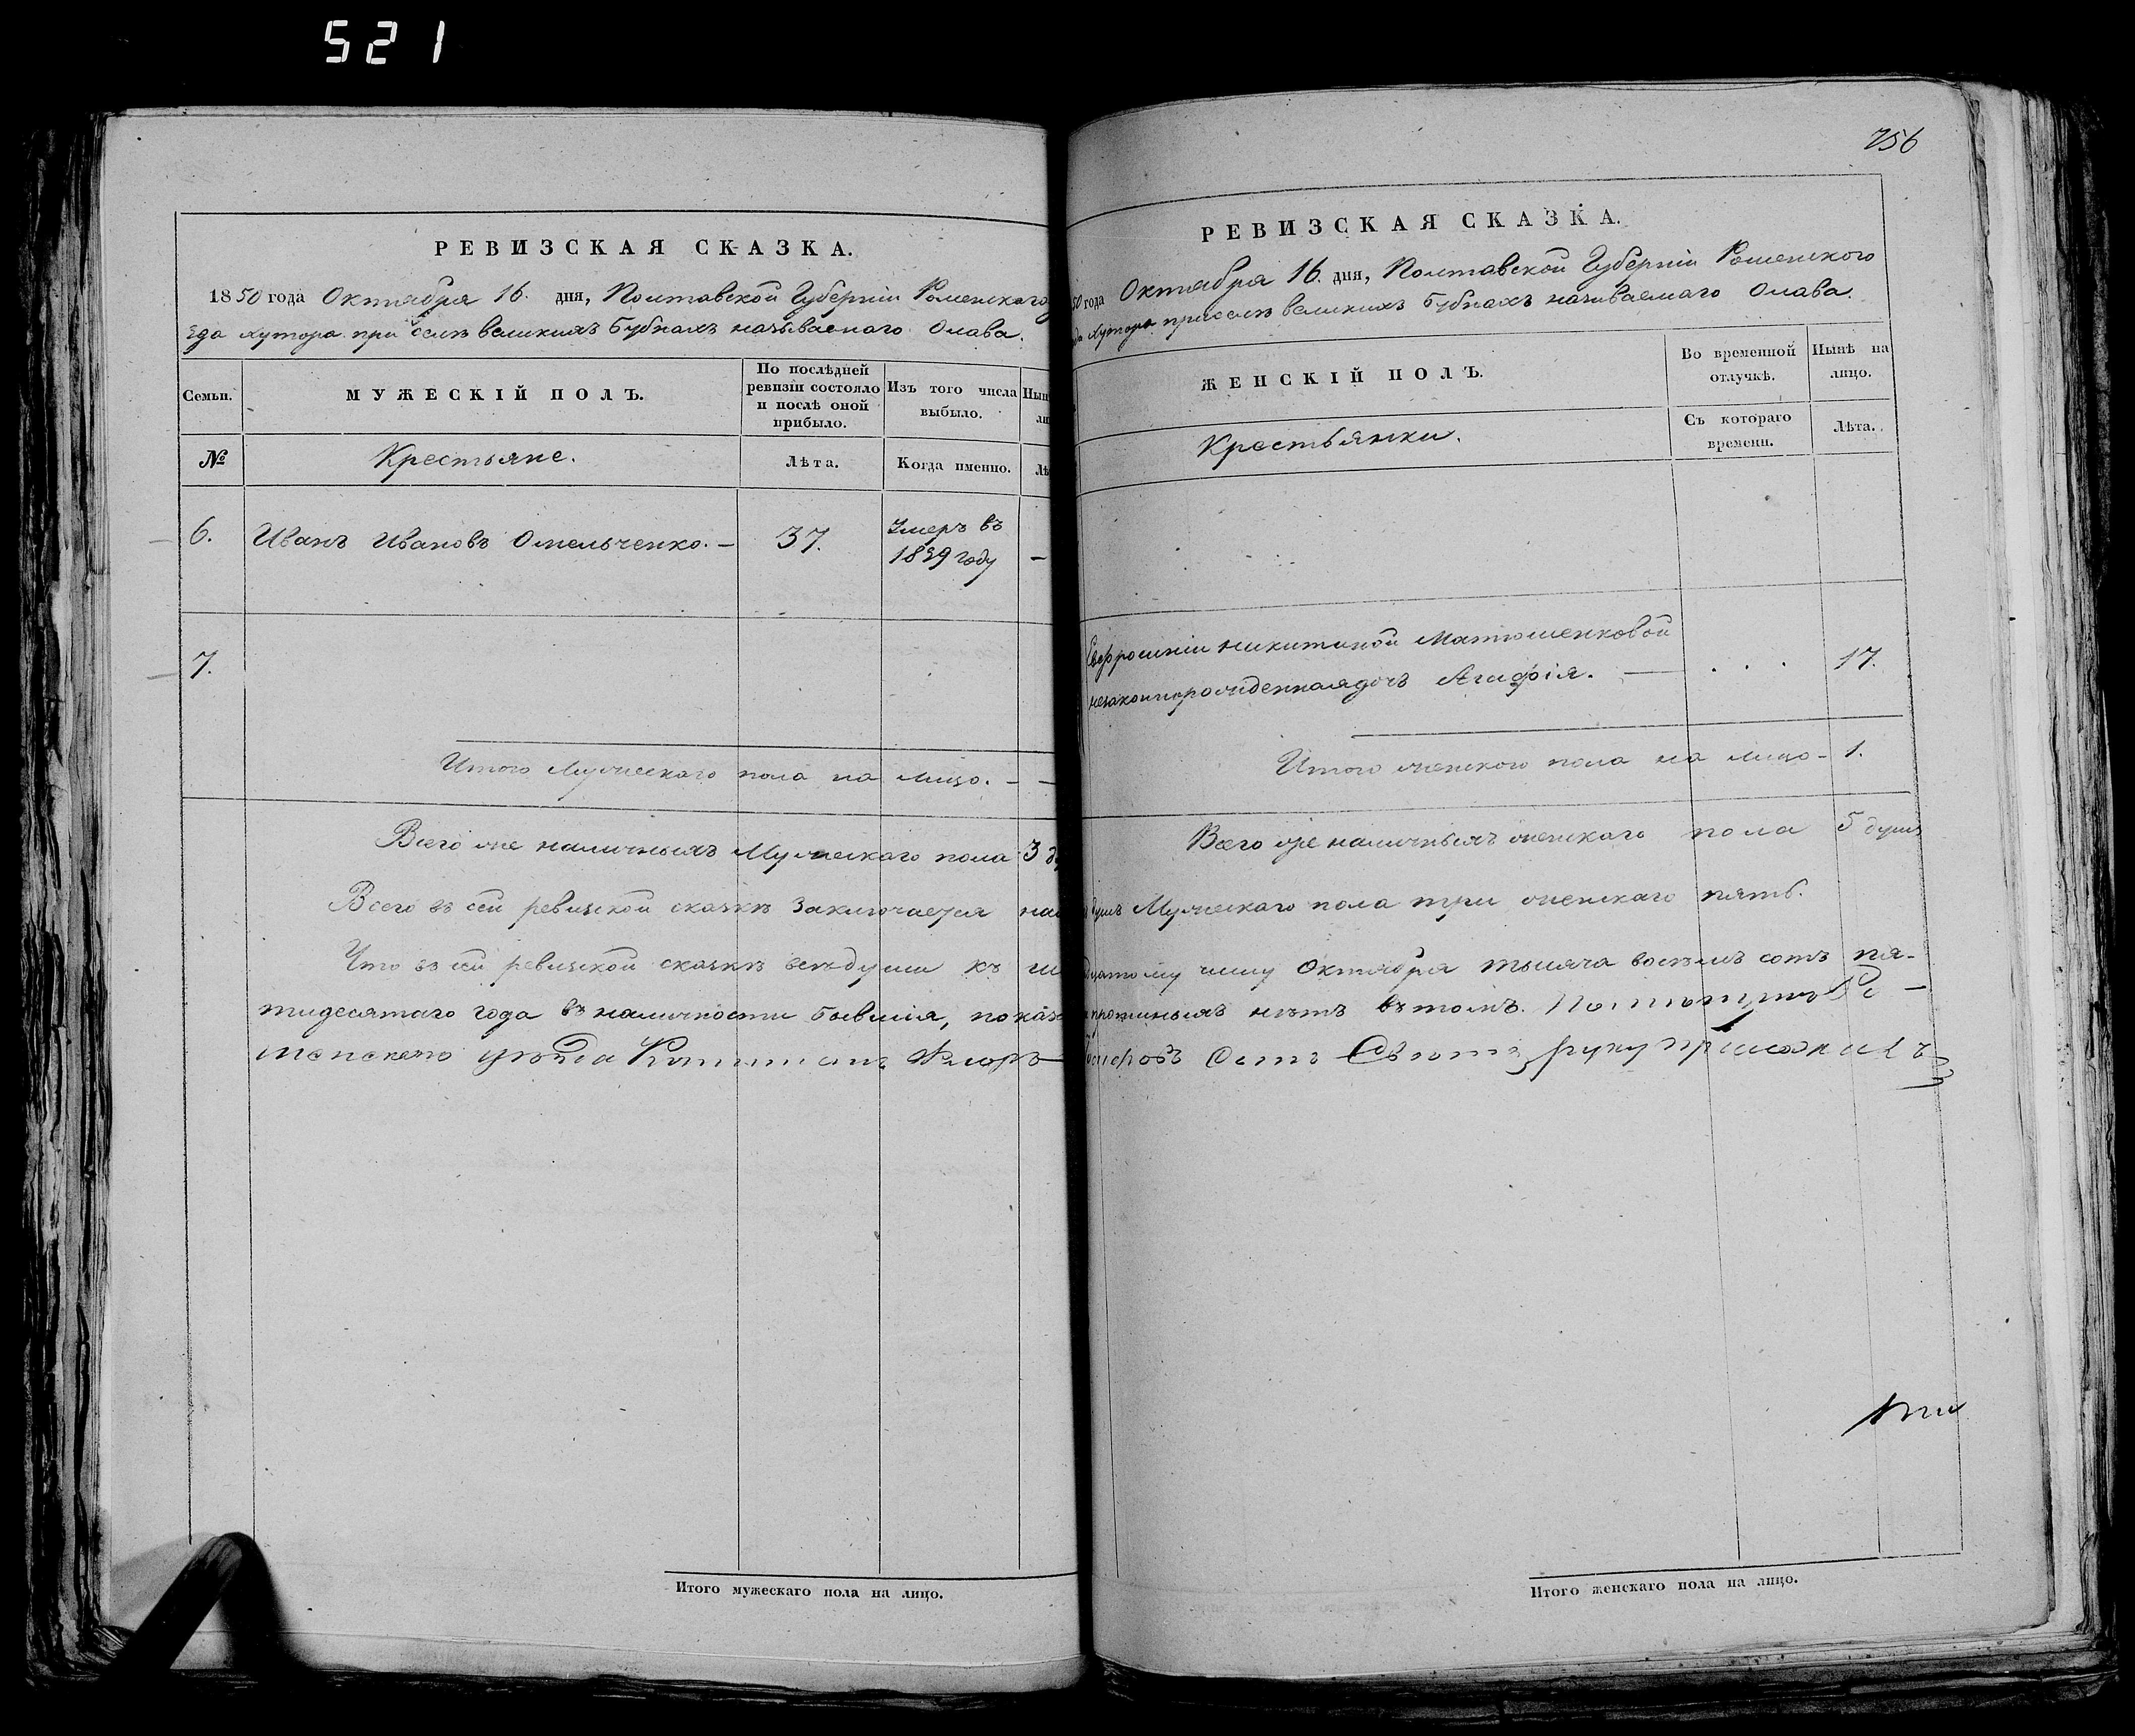 521
РЕВИЗСКАЯ СКАЗКА.
1850 года Октября 16. дня, Полтавской Губерніи Роменскаго
ѣзда хутора при селѣ великихъ Бубнахъ называемаго Олава.
Семьи.
МУЖЕСКІЙ ПОЛЪ.
По послѣдней
ревизіи состояло
и послѣ оной
прибыло.
Изъ того числа
выбыло.
№
Крестьяне.
Лѣта.
Когда именно.
6. Иванъ Ивановъ Омельченко. — 37. Умеръ въ
1839 году —
7.
Итого Мужескаго пола на лицо. — —
Всего же наличныхъ Мужескаго пола 3
Всего въ сей ревизской сказкѣ заключается
Что въ сей ревизской сказкѣ всѣ души къ
тидесятаго года въ наличности бывшія,
менскаго уѣзда
Итого мужескаго пола на лицо.
756
РЕВИЗСКАЯ СКАЗКА.
50 года Октября 16. дня, Полтавской Губерніи Роменского
хутора при селѣ великихъ Бубнахъ называемаго Олава.
ЖЕНСКІЙ ПОЛЪ.
Во временной
отлучкѣ.
Нынѣ на
лицо.
Крестьянки.
Съ котораго
времени.
Лѣта.
Евфросиніи Никитиной Матюшенковой
незаконнорожденная дочь Агафія. — . . . 17.
Итого женского пола на лицо — 1.
Всего же наличныхъ женскаго пола 5 душъ
душъ Мужескаго пола три женскаго пять.
числу Октября тысяча восемь сотъ пя-
нѣтъ въ томъ.
руку приложилъ
Итого женскаго пола на лицо.